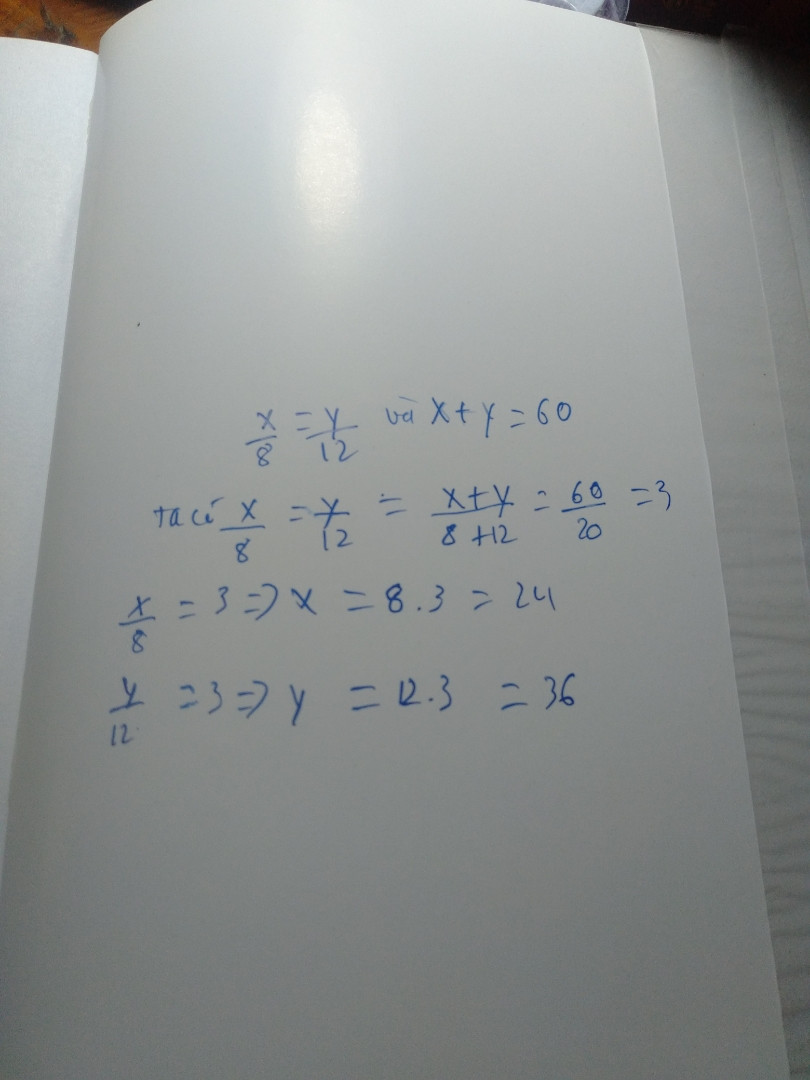 x/8 = y/12 và x + y = 60
ta có x/8 = y/12 = x+y/8+12 = 60/20 = 3
x/8 = 3 => x = 8.3 = 24
y/12 = 3 => y = 12.3 = 36